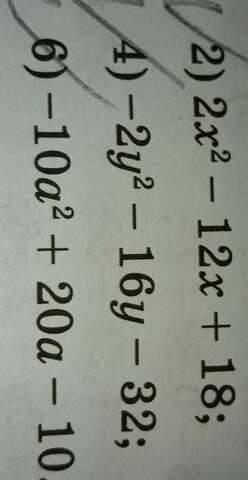 2) 2x² − 12x + 18;
4) −2y² − 16y − 32;
6) −10a² + 20a − 10.